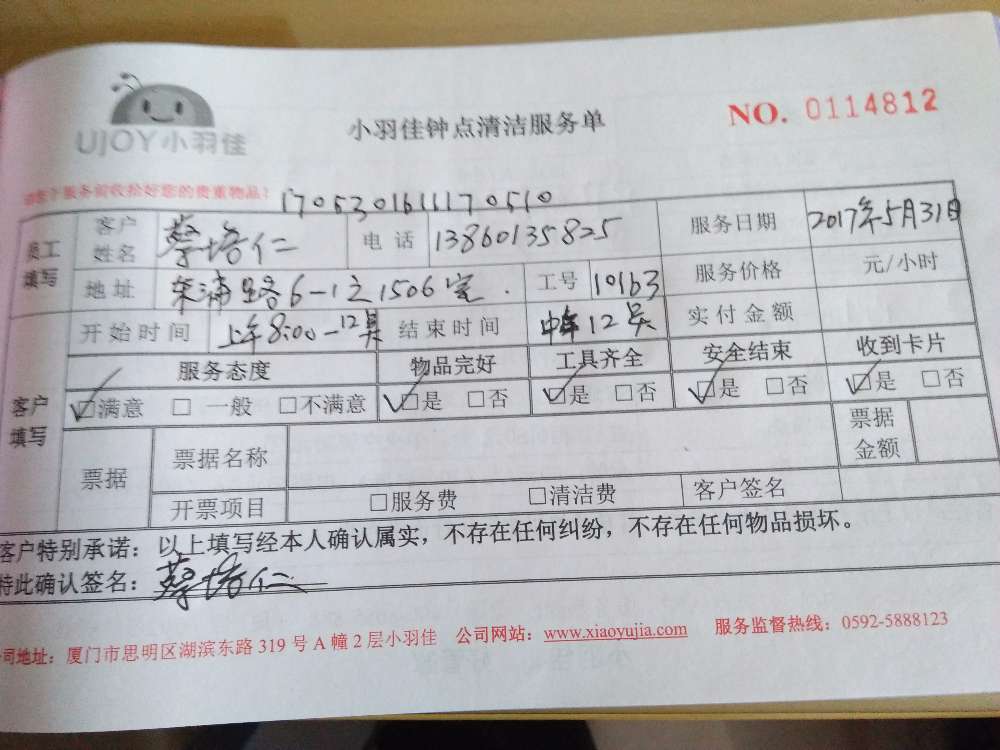 UJOY小羽佳
小羽佳钟点清洁服务单
NO. 0114812
服务前收拾好您的贵重物品!
1705301611170510
员工填写 客户姓名 蔡培仁 电话 13860135825 服务日期 2017年5月31日
地址 东浦路6-1之1506室. 工号 10163 服务价格 元/小时
开始时间 上午8:00-12点 结束时间 中午12点 实付金额
服务态度 物品完好 工具齐全 安全结束 收到卡片
客户填写 ☑满意 □一般 □不满意 ☑是 □否 ☑是 □否 ☑是 □否 ☑是 □否
票据 票据名称 票据金额
开票项目 □服务费 □清洁费 客户签名
客户特别承诺:以上填写经本人确认属实,不存在任何纠纷,不存在任何物品损坏。
特此确认签名:蔡培仁
公司地址:厦门市思明区湖滨东路319号A幢2层小羽佳 公司网站:www.xiaoyujia.com 服务监督热线:0592-5888123